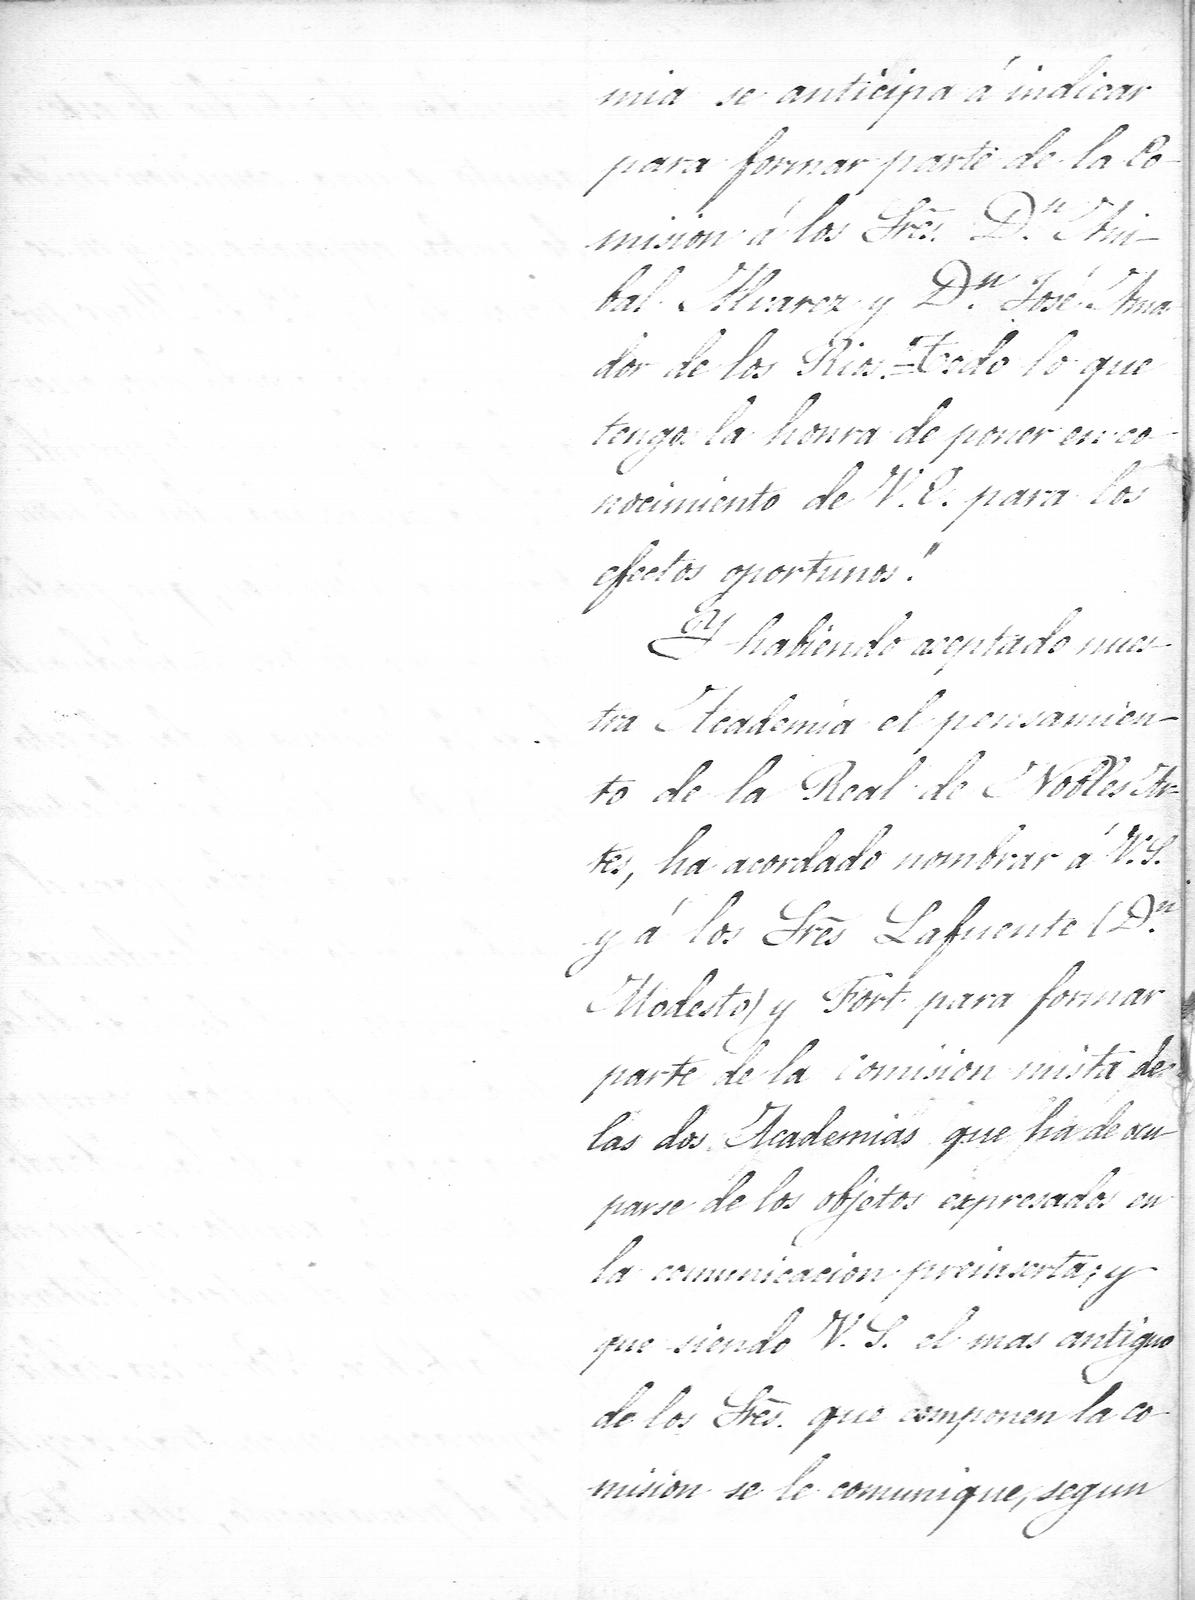 mia se anticipa á indicar
para formar parte de la Co-
mision á los Sres. Dn. Ani-
bal Alvarez y Dn. José Ama-
dor de los Rios.=Todo lo que
tengo la honra de poner en co-
nocimiento de V.E. para los
efectos oportunos."
Y habiendo aceptado nues-
tra Academia el pensamien-
to de la Real de Nobles Ar-
tes, ha acordado nombrar á V.S.
y á los Sres Lafuente (Dn.
Modesto) y Fort para formar
parte de la comision mista de
las dos Academias que ha de ocu-
parse de los objetos expresados en
la comunicacion preinserta; y
que siendo V. S. el mas antiguo
de los Sres. que componen la co-
mision se le comunique, segun